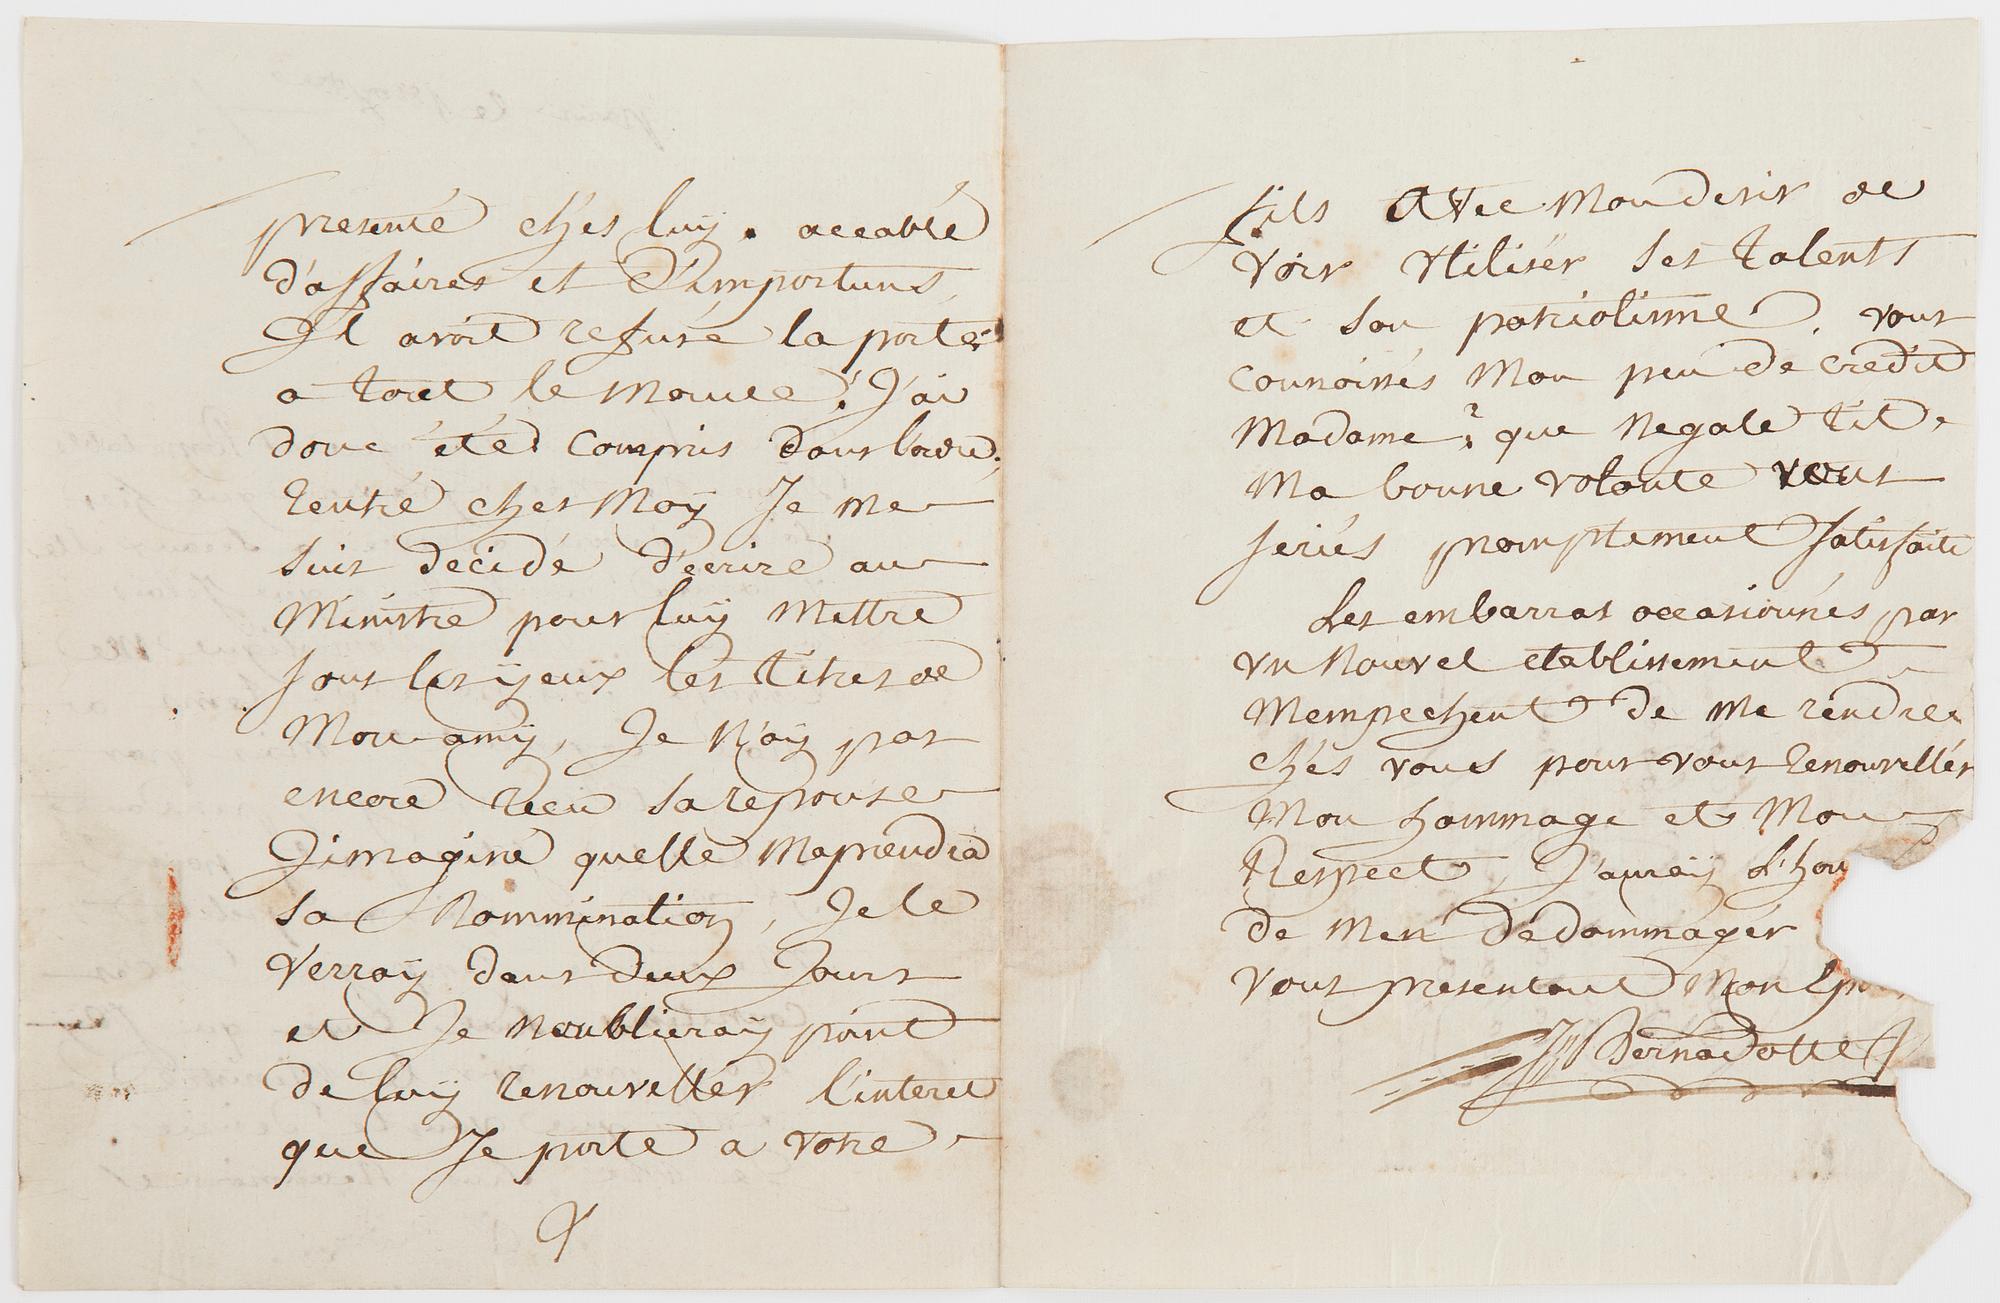 presenté chés luy. accablé
d'affaires et d'importuns,
Il avoit refusé la porte
a tout le monde. J'ai
donc été compris dans l'ordre.
rentré ches Moÿ Je me
suis decidé d'ecrire au
Ministre pour luÿ Mettre
sous les yeux les titres de
Mon amÿ, Je N'aÿ pas
encore recu sa reponse
J'imagine quelle Maprendra
sa Nommination, Je le
verraÿ dans deux Jours
et Je Noublieraÿ point
de luÿ renouveller l'interet
que Je porte a votre
fils avec Mon desir de
voir utiliser ses talents
et son patriotisme. vous
connoissés Mon peu de credit
Madame, que Negale til
Ma bonne volonté vous
seriés promptement satisfaite
Les embarras occasionnés par
un Nouvel etablissement
Mempechent de me rendre
chés vous pour vous renouveller
Mon hommage et Mon
Respect, J'auraÿ l'hon
de Men dedommager
vous presentant Mon
Bernadotte